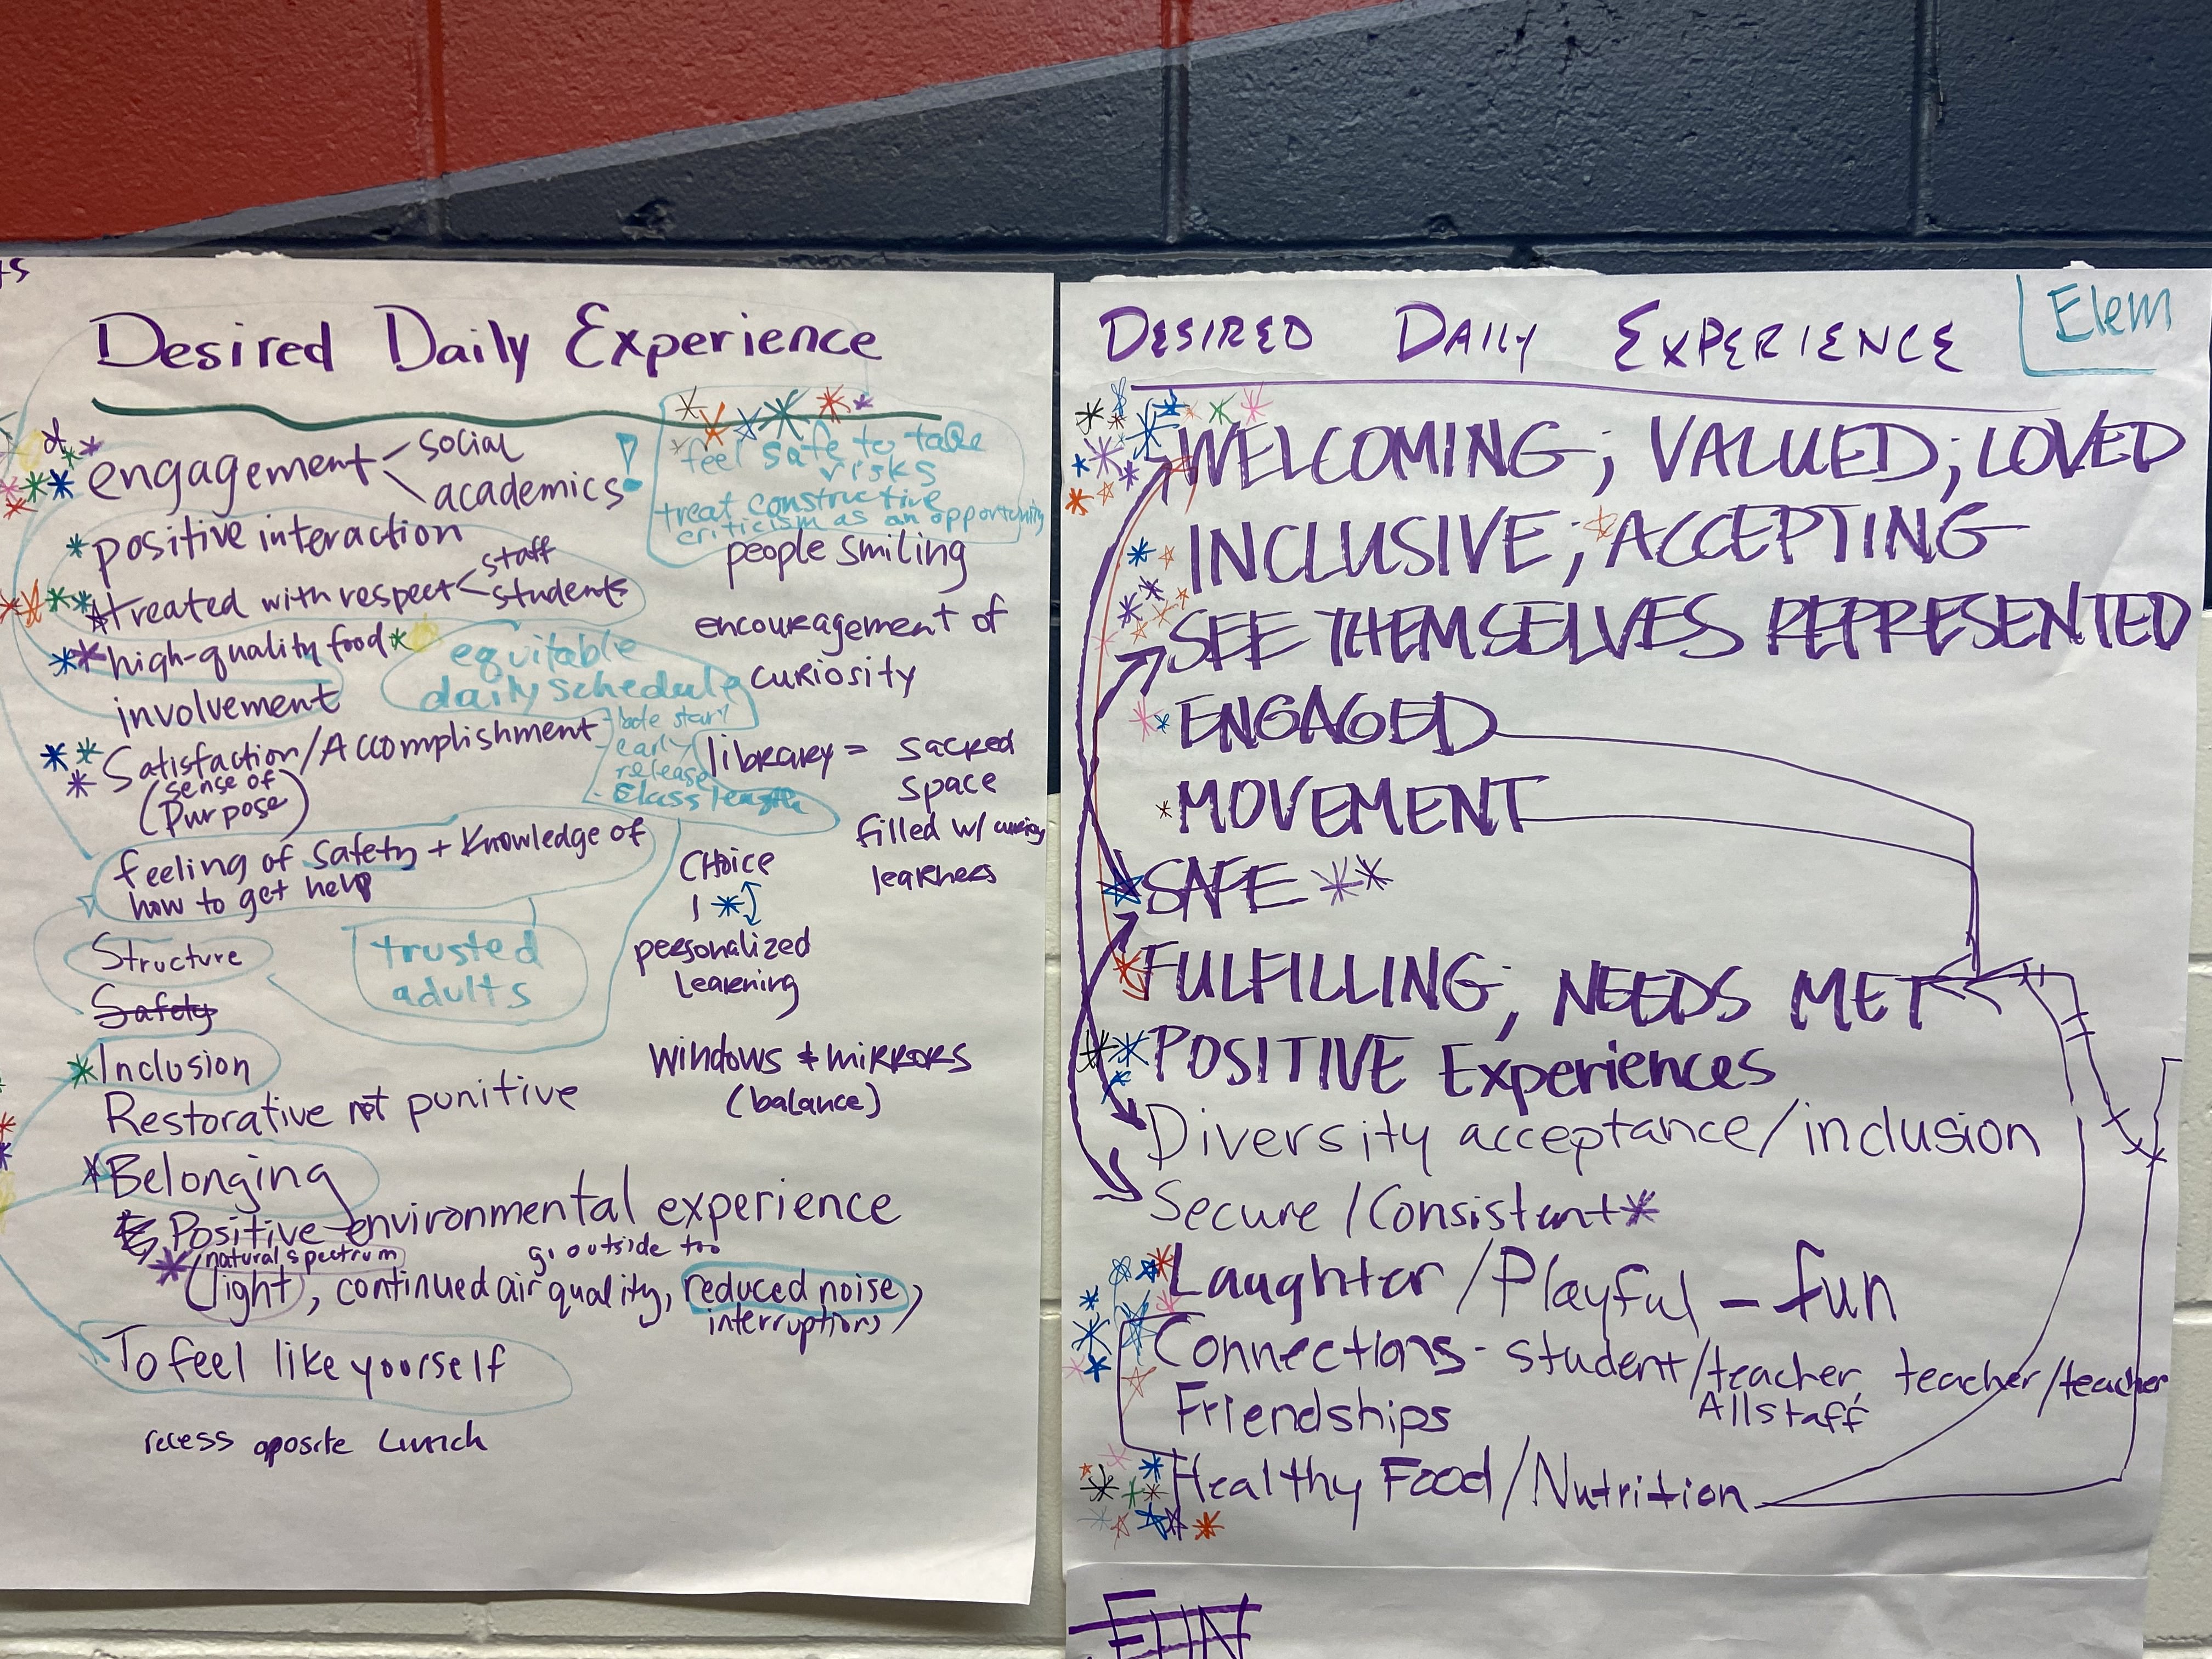 Desired Daily Experience
engagement
social
academics
!
feel safe to take
risks
treat constructive
criticism as an opportunity
positive interaction
people smiling
treated with respect
staff
students
high-quality food
encouragement of
curiosity
equitable
daily schedule
- late start
- early
release
- class length
involvement
Satisfaction/Accomplishment
(sense of
Purpose)
library = sacred
space
filled w/
learners
feeling of safety + knowledge of
how to get help
CHoice
personalized
learning
Structure
trusted
adults
Safety
Inclusion
windows + mirrors
(balance)
Restorative not punitive
Belonging
Positive environmental experience
natural spectrum
go outside too
(light, continued air quality, reduced noise,
interruptions)
To feel like yourself
recess oposite Lunch
DESIRED DAILY EXPERIENCE
Elem
WELCOMING; VALUED; LOVED
INCLUSIVE; ACCEPTING
SEE THEMSELVES REPRESENTED
ENGAGED
MOVEMENT
SAFE
FULFILLING; NEEDS MET
POSITIVE Experiences
Diversity acceptance/inclusion
Secure/Consistent
Laughter/Playful - fun
Connections - student/teacher, teacher/teacher
All staff
Friendships
Healthy Food/Nutrition
FUN